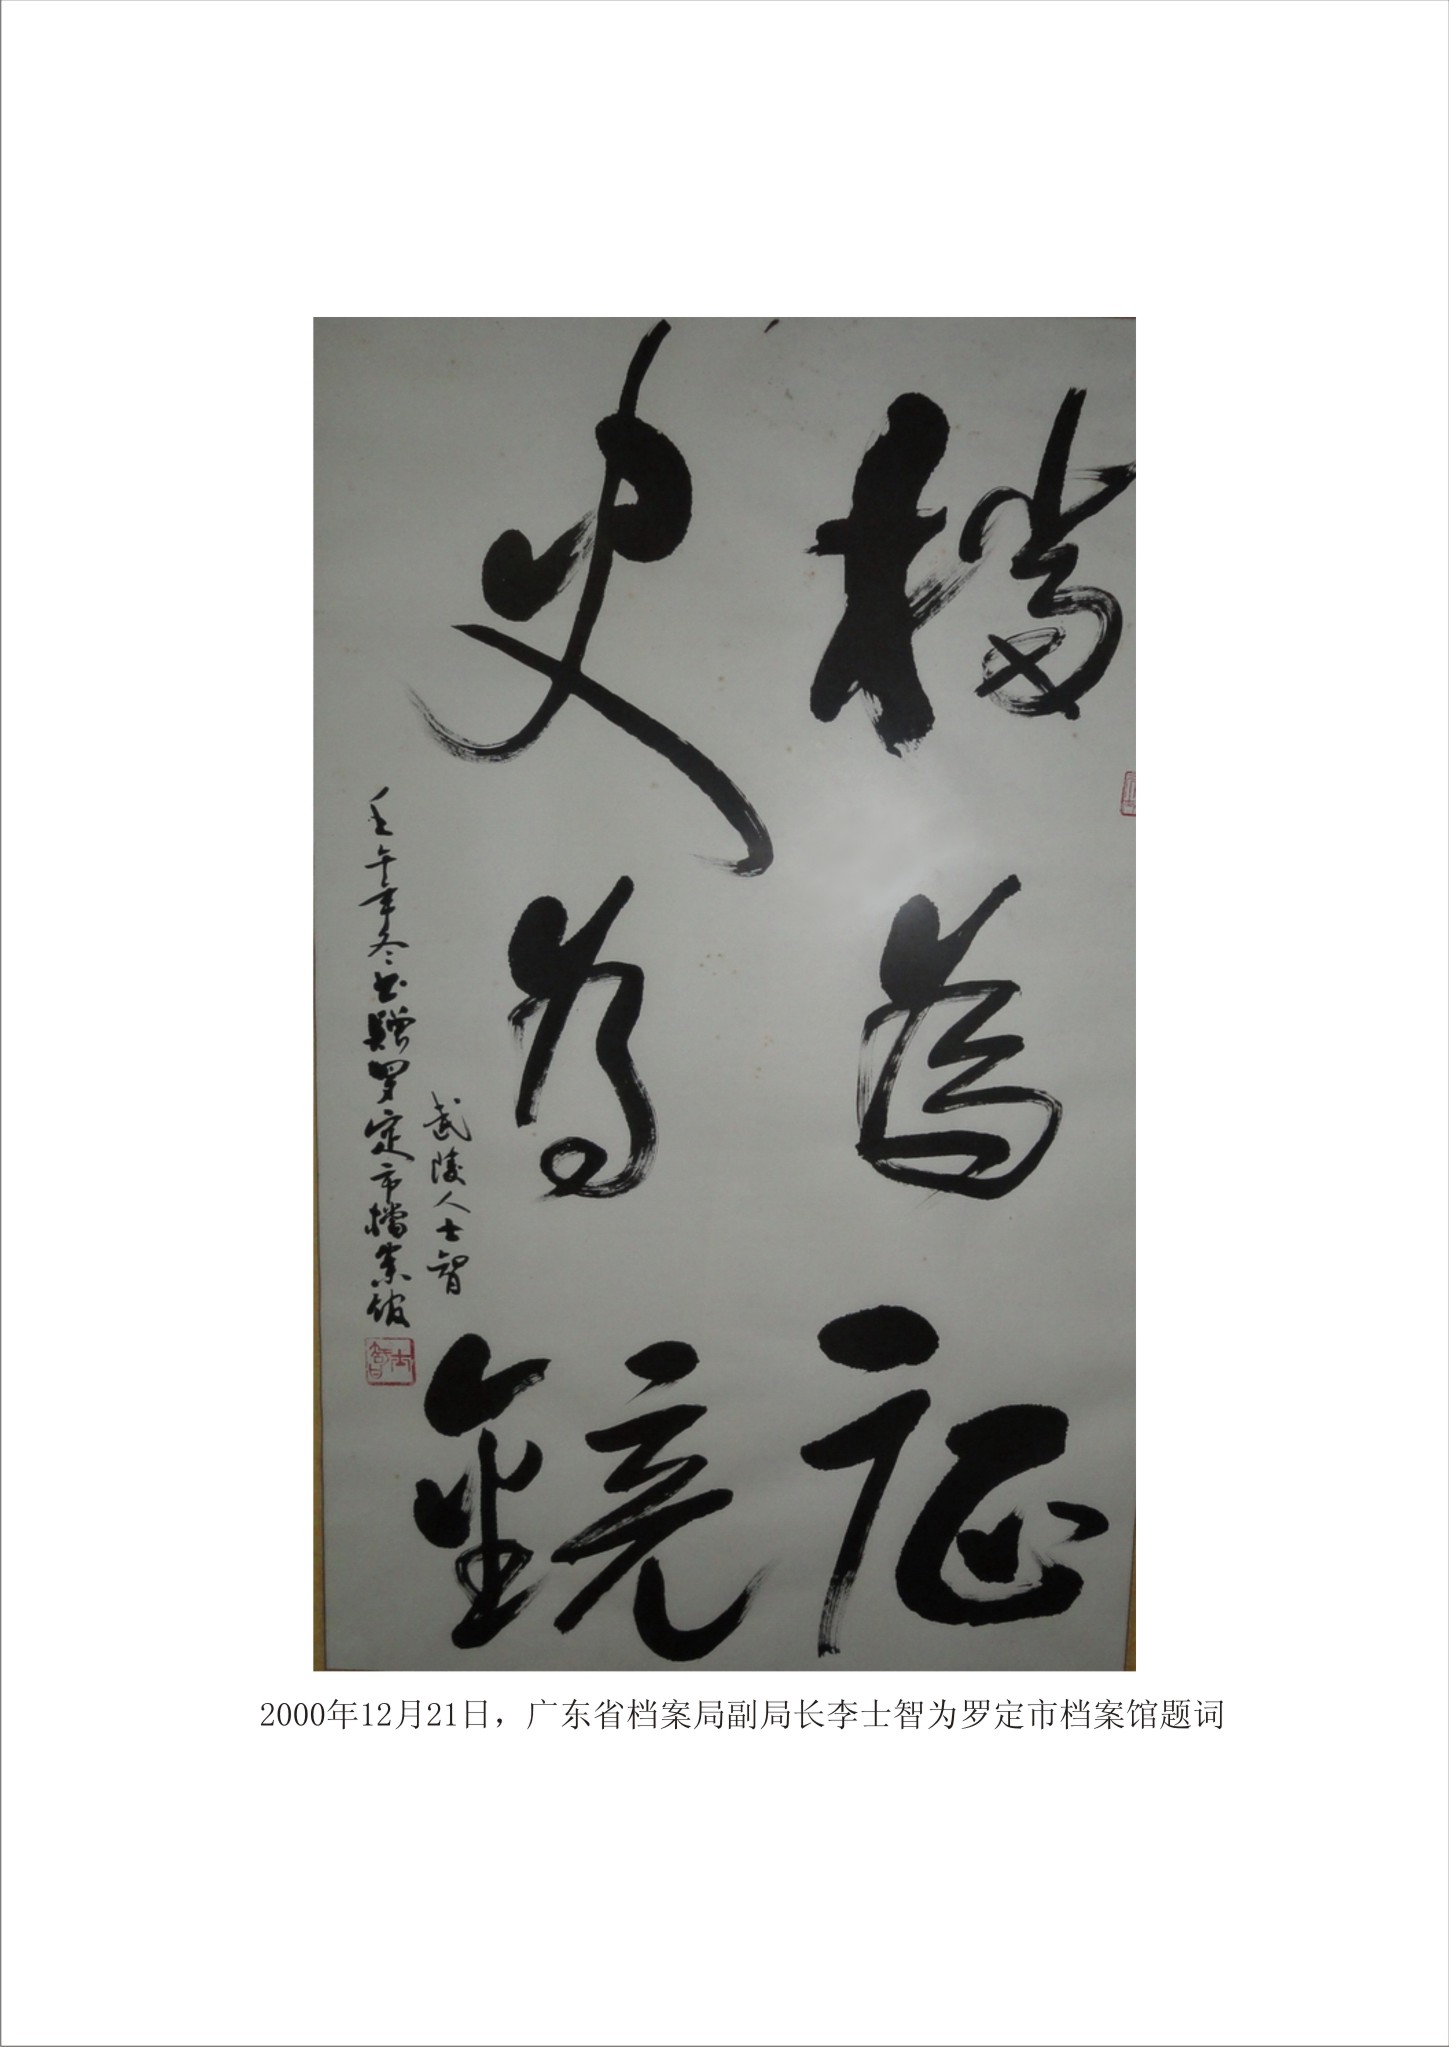 檔為证
史為鏡
武陵人士智
壬午年冬书贈罗定市檔案馆
士智
2000年12月21日，广东省档案局副局长李士智为罗定市档案馆题词